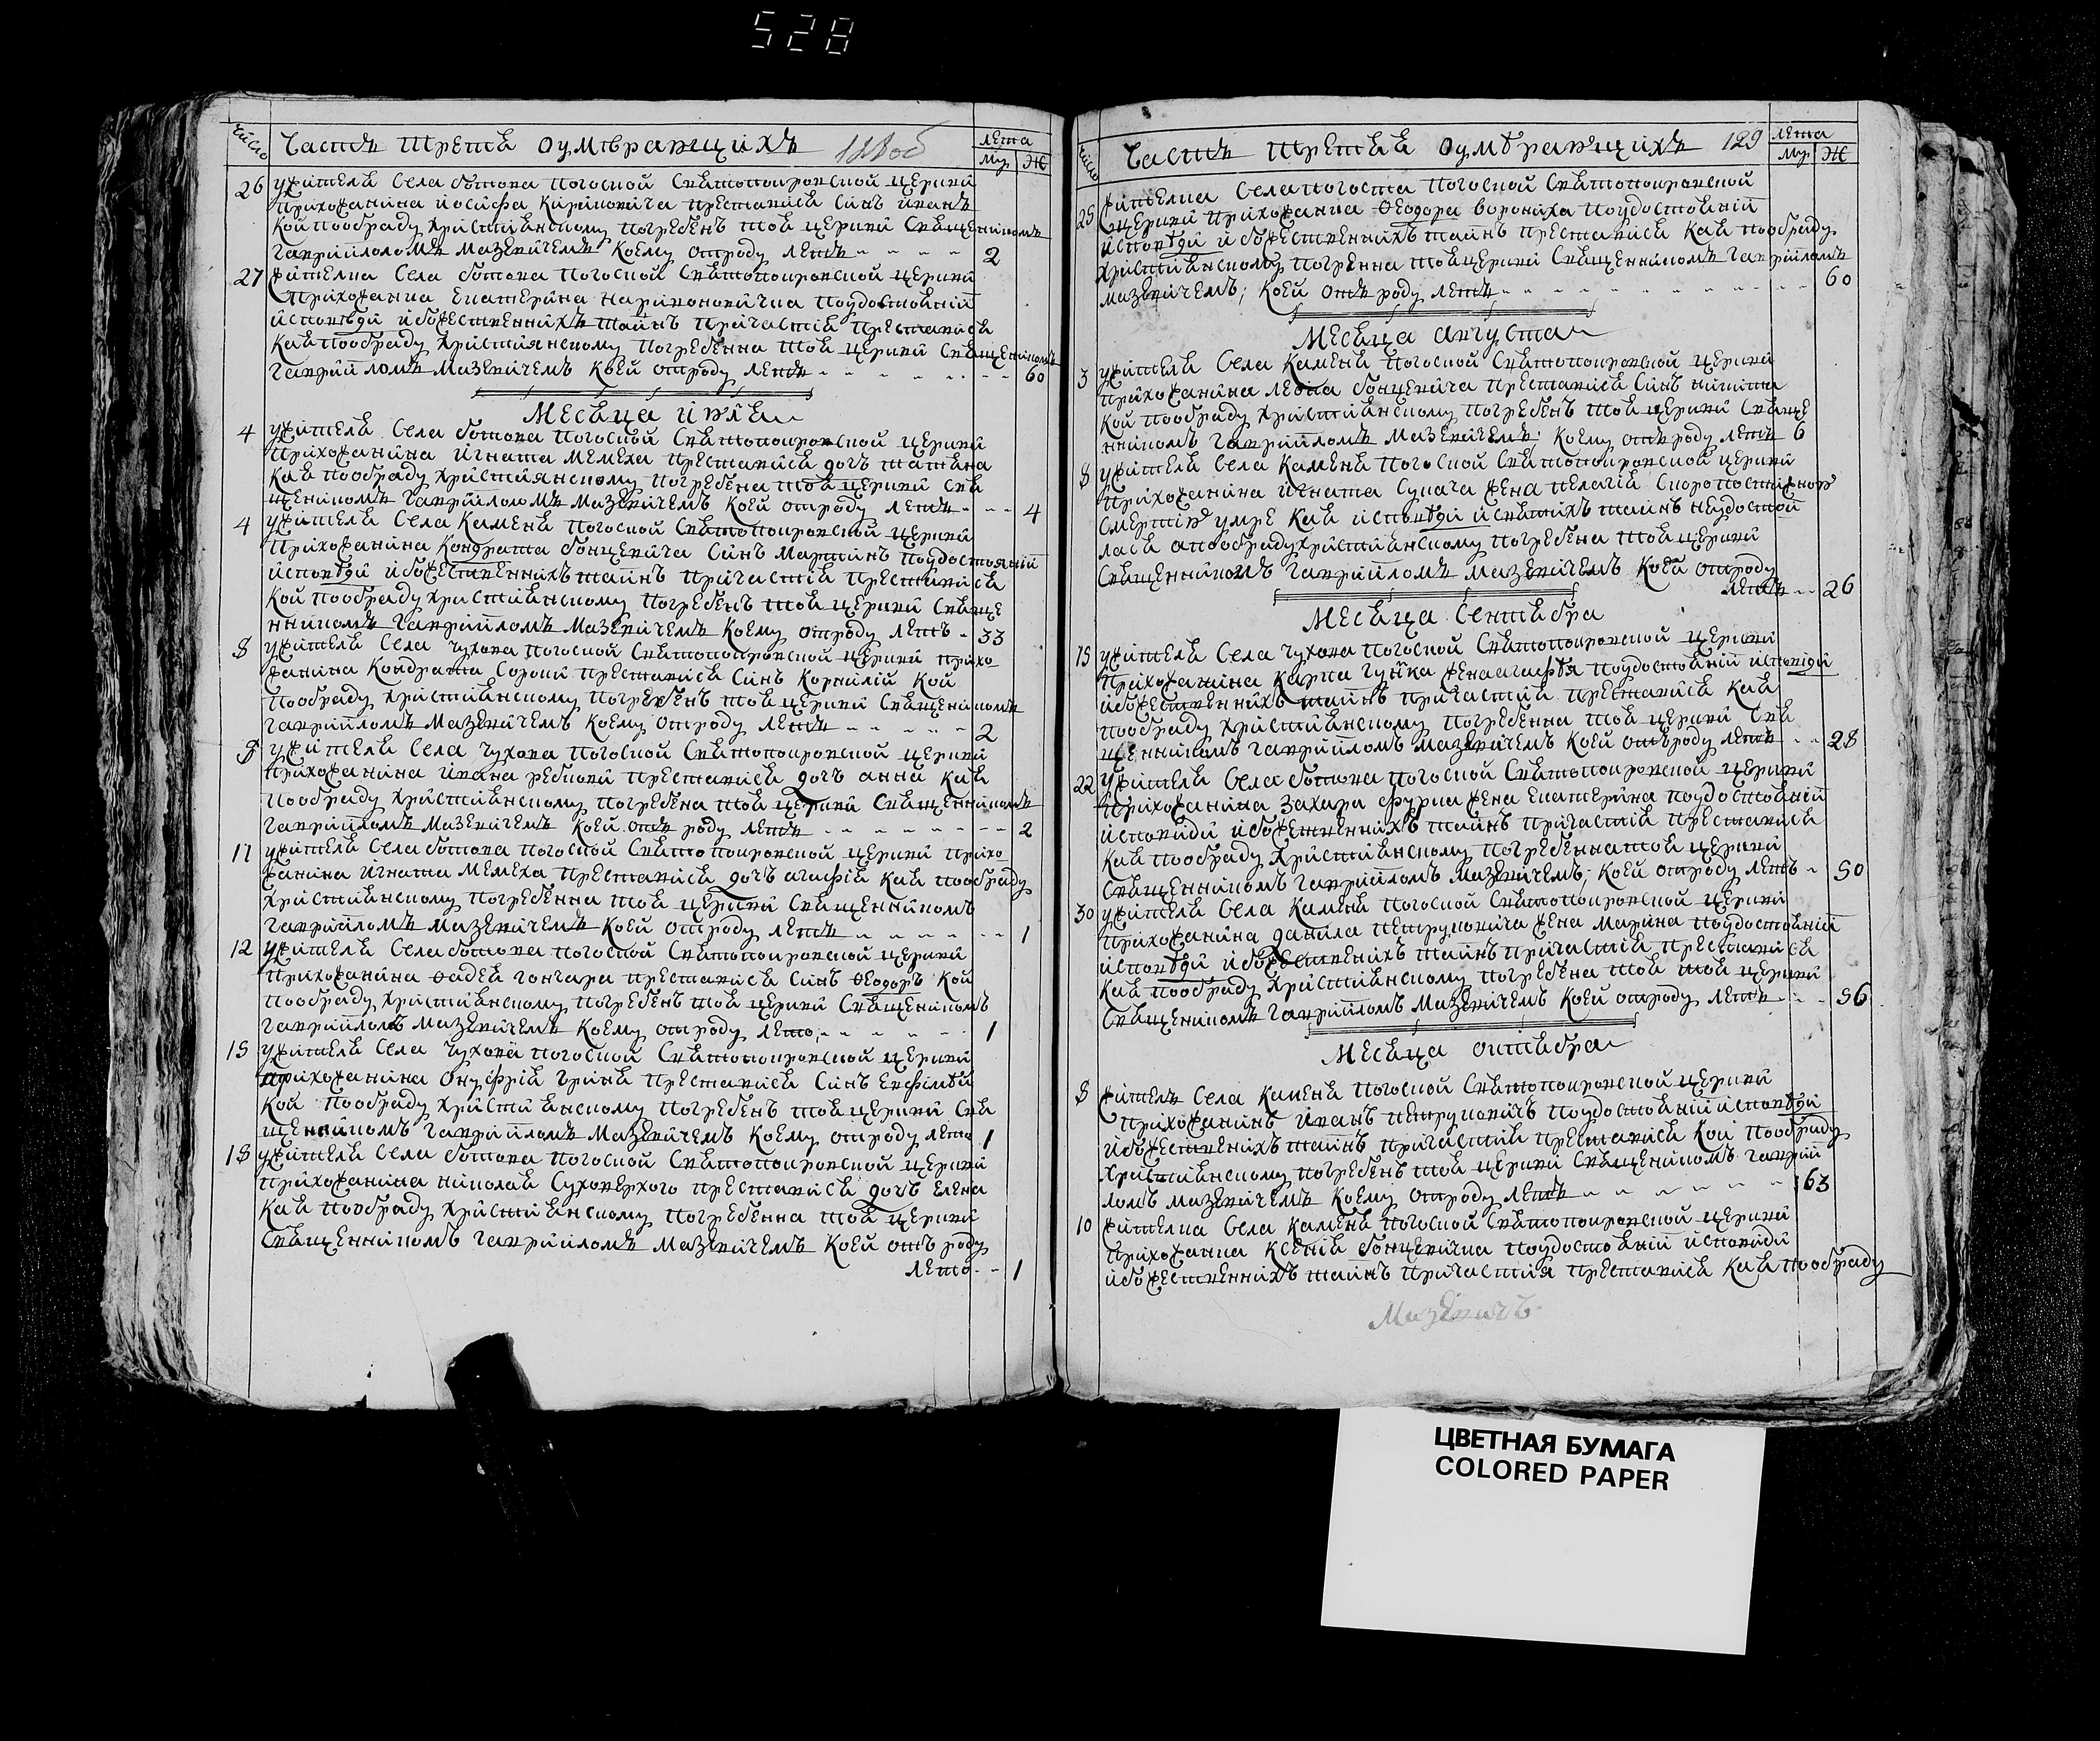 528
Число
Часть третья о умираюшихъ 128об
лета
Му Ж
26 у жителя села Ботова Погоской Святопокровской церкви
прихожанина Иосифа Кирковича преставися синъ Иванъ
кой пообряду християнскому погребенъ тоя церкви священикомъ
Гаврииломъ Мазевичемъ коему отроду летъ 2
27 жителка села Ботова Погоской Святопокровской церкви
прихожанка Екатерина поудостоянии
исповѣди и божественнихъ таинъ причастия преставися
кая пообряду християнскому погребенна тоя церкви священикомъ
Гаврииломъ Мазевичемъ коей отроду летъ 60
Месяца Июля
4 у жителя села Ботова Погоской Святопокровской церкви
прихожанина Игната Мемеха преставися дочъ Татяна
кая пообряду християнскому погребена тоя церкви свя
щеникомъ Гаврииломъ Мазевичемъ коей отроду летъ 4
4 у жителя села Каменя Погоской Святопокровской церкви
прихожанина Кондрата Бонцевича синъ Мартинъ поудостоянии
исповѣди и божественнихъ таинъ причастия преставися
кой пообряду християнскому погребенъ тоя церкви свяще
нникомъ Гаврииломъ Мазевичемъ коему отроду летъ 33
8 у жителя села Чухова Погоской Святопокровской церкви прихо
жанина Кондрата Сороки преставися синъ Корнилий кой
пообряду християнскому погребенъ тоя церкви священикомъ
Гаврииломъ Мазевичемъ коему отроду летъ 2
8 у жителя села Чухова Погоской Святопокровской церкви
прихожанина Ивана преставися дочъ Анна кая
пообряду християнскому погребена тоя церкви священникомъ
Гаврииломъ Мазевичемъ коей отъ роду летъ 2
11 у жителя села Ботова Погоской Святопокровской церкви прихо
жанина Игната Мемеха преставися дочъ Агафия кая пообряду
християнскому погребенна тоя церкви священникомъ
Гаврииломъ Мазевичемъ коей отроду летъ 1
12 у жителя села Ботова Погоской Святопокровской церкви
прихожанина Фадея Гончара преставися синъ Феодоръ кой
пообряду християнскому погребенъ тоя церкви священикомъ
Гаврииломъ Мазевичемъ коему отроду лето 1
15 у жителя села Чухова Погоской Святопокровской церкви
прихожанина Онуфрия Гриня преставися синъ Евфимѣй
кой пообряду християнскому погребенъ тоя церкви свя
щенникомъ Гаврииломъ Мазевичемъ коему отроду лета 1
18 у жителя села Ботова Погоской Святопокровской церкви
прихожанина Николая Суховерхого преставися дочъ Елена
кая пообряду християнскому погребенна тоя церкви
священникомъ Гаврииломъ Мазевичемъ коей отъ роду
лето 1
Число
Часть третьяя о умираюшихъ 129
лета
Му Ж
25 жителка села Погоста Погоской Святопокровской
церкви прихожанка Феодора Ворониха поудостоянии
исповѣди и божественнихъ таинъ преставися кая пообряду
християнскому погребенна тоя церкви священникомъ Гаврииломъ
Мазевичемъ; коей отъ роду летъ 60
Месяца Августа
3 у жителя села Каменя Погоской Святопокровской церкви
прихожанина Леона Бонцевича преставися синъ Никита
кой пообряду християнскому погребенъ тоя церкви свяще
нникомъ Гаврииломъ Мазевичемъ коему отъ роду летъ 6
8 у жителя села Каменя Погоской Святопокровской церкви
прихожанина Игната Сукача жена Пелагия скоропостижною
смертию умре кая исповѣди и святихъ таинъ неудостои
лася а пообряду християнскому погребена тоя церкви
священникомъ Гаврииломъ Мазевичемъ коей отроду
летъ 26
Месяца Сентября
15 у жителя села Чухова Погоской Святопокровской церкви
прихожанина Карпа жена Агафѣя поудостоянии исповѣди
и божественнихъ таинъ причастия преставися кая
пообряду християнскому погребенна тоя церкви свя
щенникомъ Гаврииломъ Мазевичемъ коей отъроду летъ 28
22 у жителя села Ботова Погоской Святопокровской церкви
прихожанина Захара жена Екатерина поудостоянии
исповиди и божественнихъ таинъ причастия преставися
кая пообряду християнскому погребенна тоя церкви
священникомъ Гаврииломъ Мазевичемъ; коей отроду летъ 50
30 у жителя села Каменя Погоской Святопокровской церкви
прихожанина Данила Петруковича жена Марина поудостоянии
исповѣди и божественихъ таинъ причастия преставися
кая пообряду християнскому погребена тоя тоя церкви
священикомъ Гаврииломъ Мазевичемъ коей отроду летъ 56
Месяца Октября
8 житель села Каменя Погоской Святопокровской церкви
прихожанинъ Иванъ Петруковичъ поудостоянии исповѣди
и божественихъ таинъ причастия преставися кой пообряду
християнскому погребенъ тоя церкви священикомъ Гаврии
ломъ Мазевичемъ коему отроду летъ 63
10 жителка села Каменя Погоской Святопокровской церкви
прихожанка Ксения Бонцевичка поудостоянии исповиди
и божественнихъ таинъ причастия преставися кая пообряду
Мазевичъ
ЦВЕТНАЯ БУМАГА
COLORED PAPER